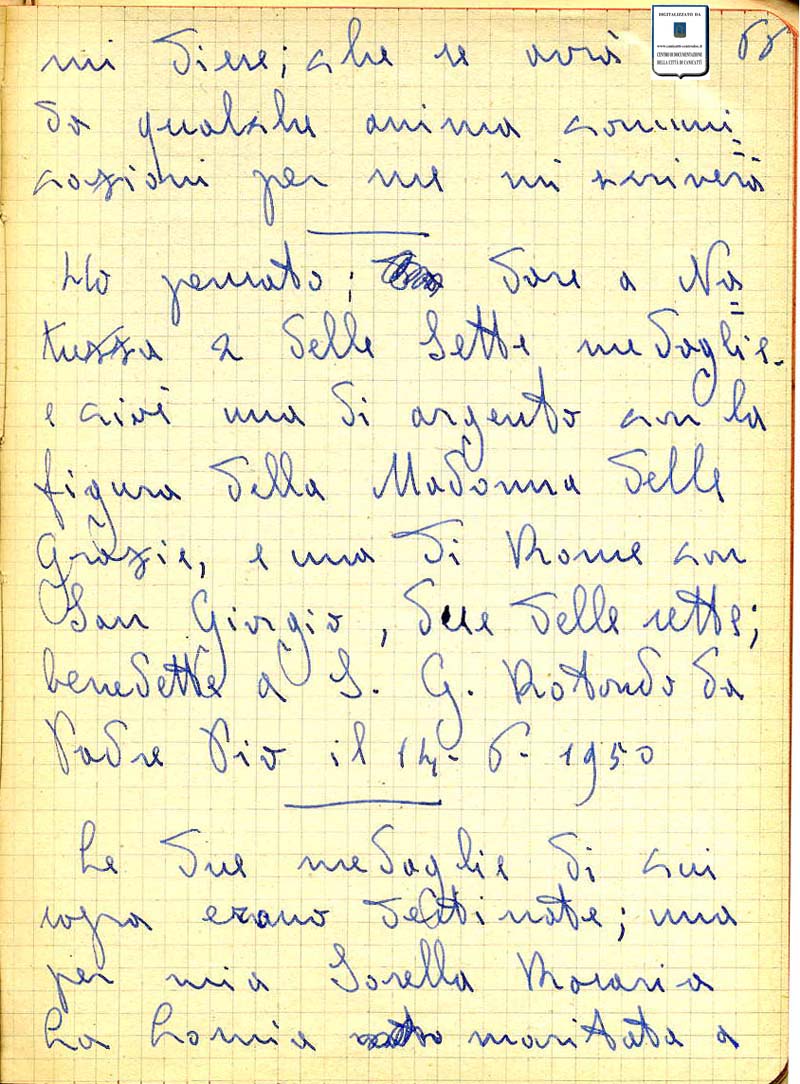 DIGITALIZZATO DA
www.canicatti-centrodoc.it
CENTRO DI DOCUMENTAZIONE
DELLA CITTÀ DI CANICATTÌ
mi dice; che se avrà
da qualche anima comuni=
cazioni per me mi scriverà
Ho pensato; dare a Na=
tuzza 2 delle Sette medaglie.
e cioè una di argento con la
figura della Madonna delle
Grazie, e una di Rome con
San Giorgio, due delle sette;
benedette a S. G. Rotondo da
Padre Pio il 14. 6. 1950
Le due medaglie di cui
sopra erano destinate; una
per mia Sorella Rosaria
La Lomia maritata a